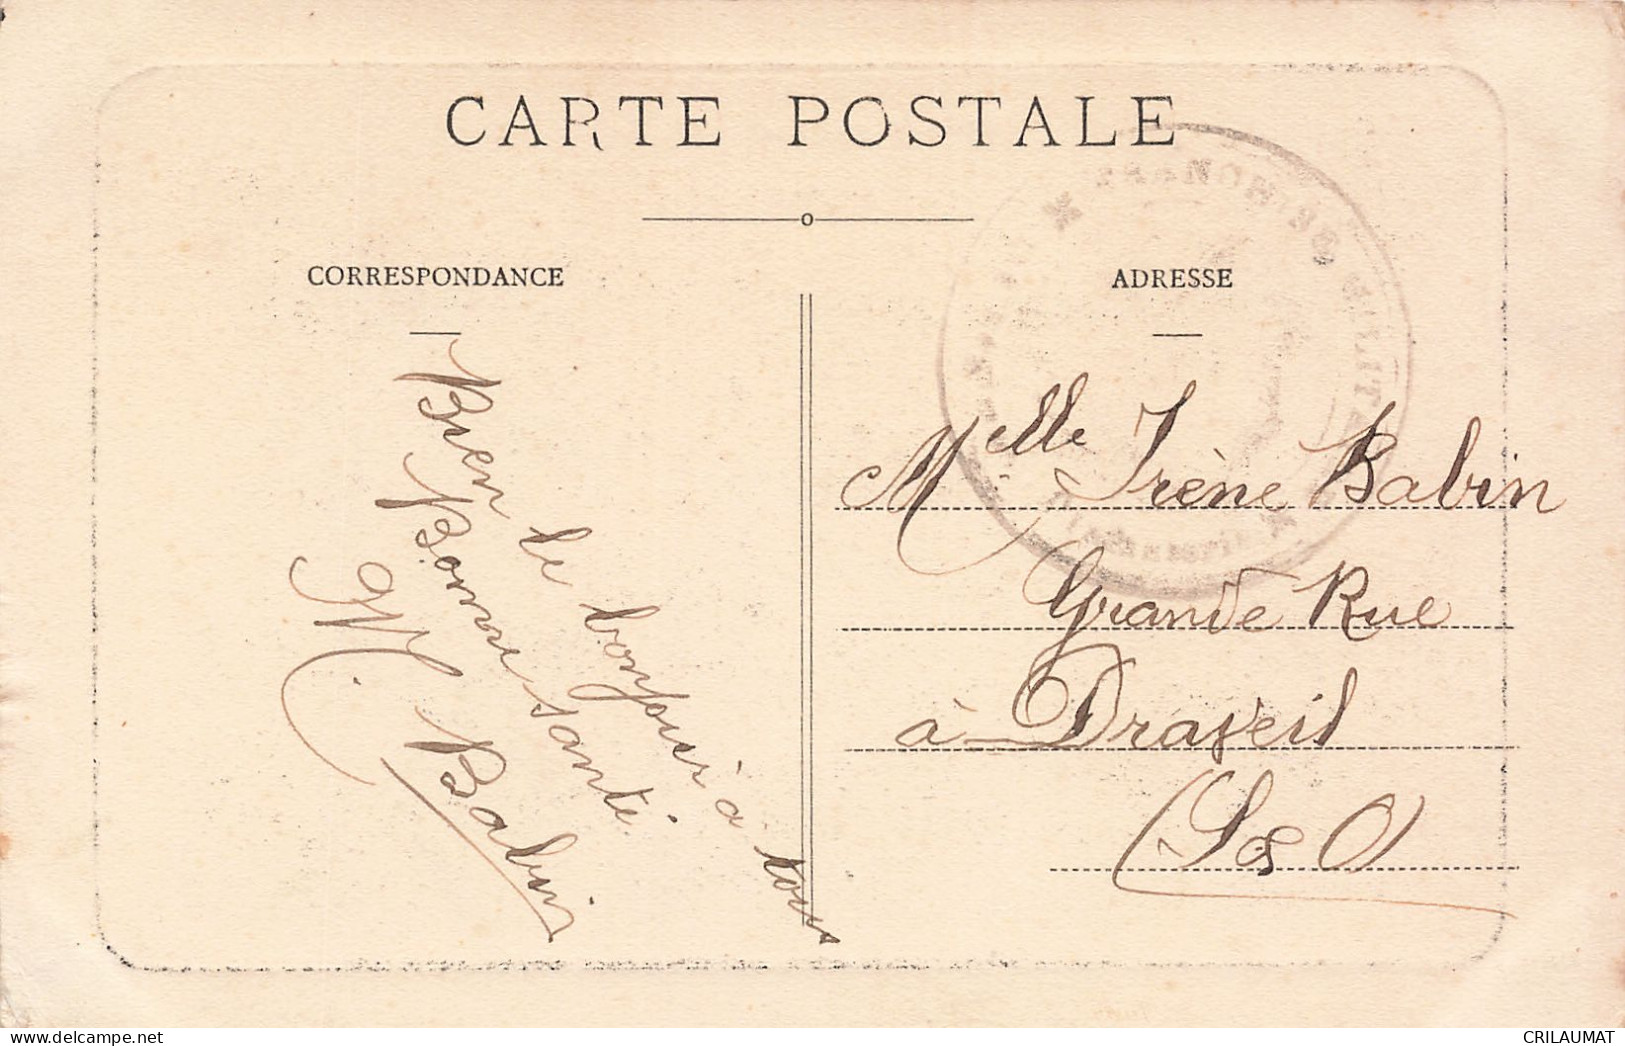 CARTE POSTALE
CORRESPONDANCE
Bien le bonjour à tous
Bonne santé.
M. Babin
ADRESSE
Melle Irène Babin
Grande Rue
à Draveil
(S os O)
delcampe.net
CRILAUMAT